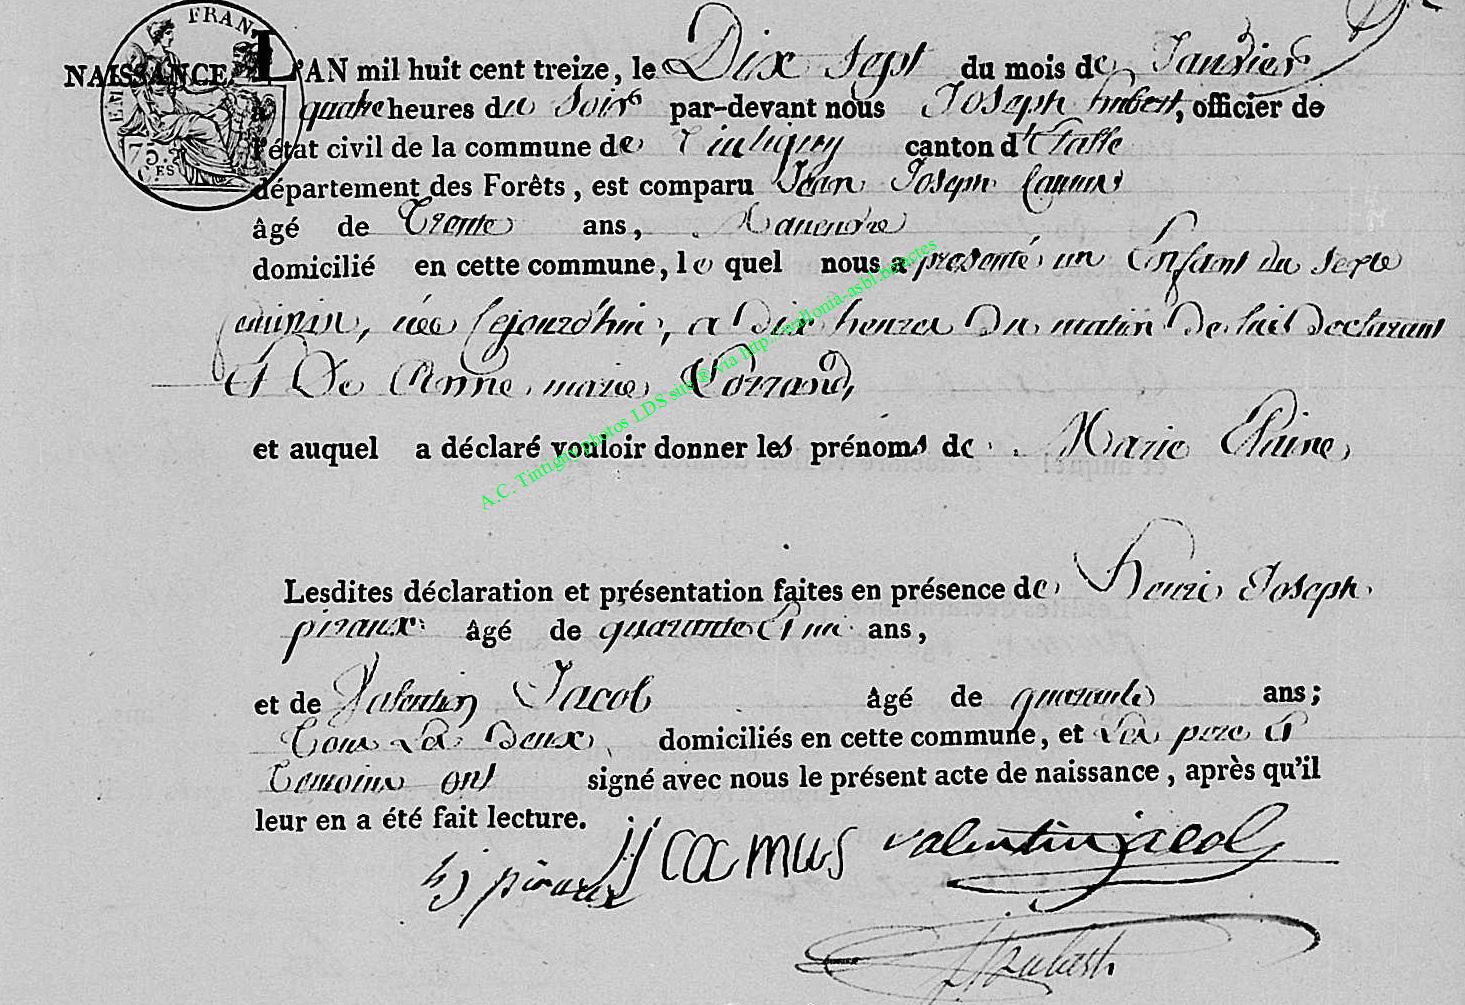 FRAN
EMP
75.
C.ES
NAISSANCE. L'AN mil huit cent treize, le Dix Sept du mois de Janvier
à quatre heures du Soir par-devant nous Joseph hubert, officier de
l'état civil de la commune de Tintigny canton d'Etalle
département des Forêts, est comparu Jean Joseph Camus
âgé de Trente ans, Manendre
domicilié en cette commune, le quel nous a presenté un Enfant du Sexe
feminin, née cejourd'hui, a Dix heures Du matin De luit Declarant
Et De Anne marie
et auquel a déclaré vouloir donner les prénoms de Marie
Lesdites déclaration et présentation faites en présence de henri Joseph
piraux âgé de quarante Et un ans,
et de Valentin Jacob âgé de quarante ans;
Tous Les Deux domiciliés en cette commune, et Les pere Et
Temoins ont signé avec nous le présent acte de naissance, après qu'il
leur en a été fait lecture.
hj piraux jj camus valentin jacob
hubert
A.C. Tintigny photos LDS site ® via http://wallonia-asbl.be/actes